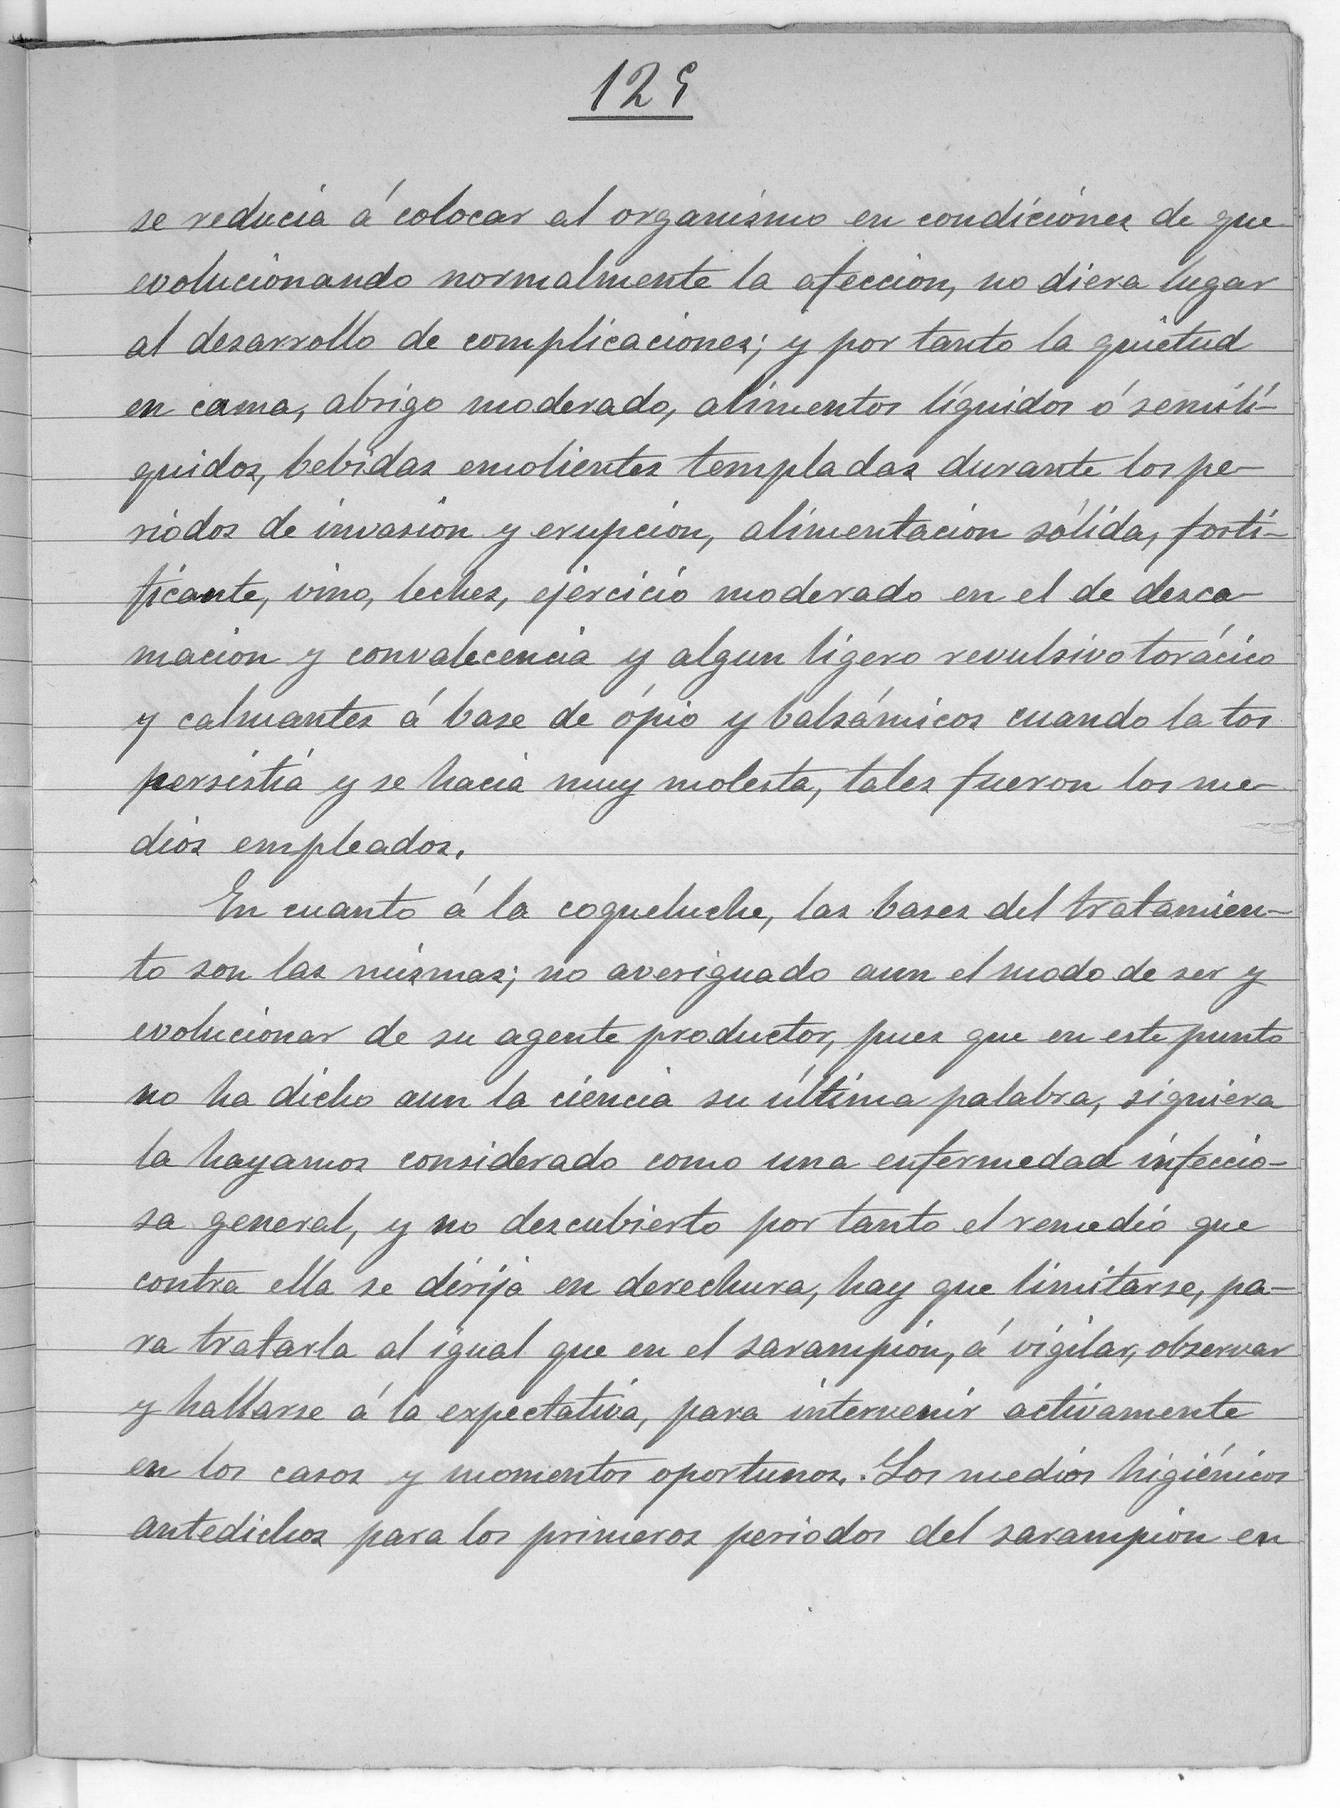 129
se reducia á colocar al organismo en condiciones de que
evolucionando normalmente la afeccion, no diera lugar
al desarrollo de complicaciones; y por tanto la quietud
en cama, abrigo moderado, alimentos líquidos ó semilí-
quidos, bebidas emolientes templadas durante los pe-
riodos de invasion y erupcion, alimentacion sólida, forti-
ficante, vino, leches, ejercicio moderado en el de desca-
macion y convalecencia y algun ligero revulsivo torácico
y calmantes á base de ópio y balsámicos cuando la tos
persistia y se hacia muy molesta, tales fueron los me-
dios empleados.
En cuanto á la coqueluche, las bases del tratamien-
to son las mismas; no averiguado aun el modo de ser y
evolucionar de su agente productor, pues que en este punto
no ha dicho aun la ciencia su última palabra, siquiera
la hayamos considerado como una enfermedad infeccio-
sa general, y no descubierto por tanto el remedio que
contra ella se dirija en derechura, hay que limitarse, pa-
ra tratarla al igual que en el sarampion, á vigilar, observar
y hallarse á la expectativa, para intervenir activamente
en los casos y momentos oportunos. Los medios higiénicos
antedichos para los primeros periodos del sarampion en